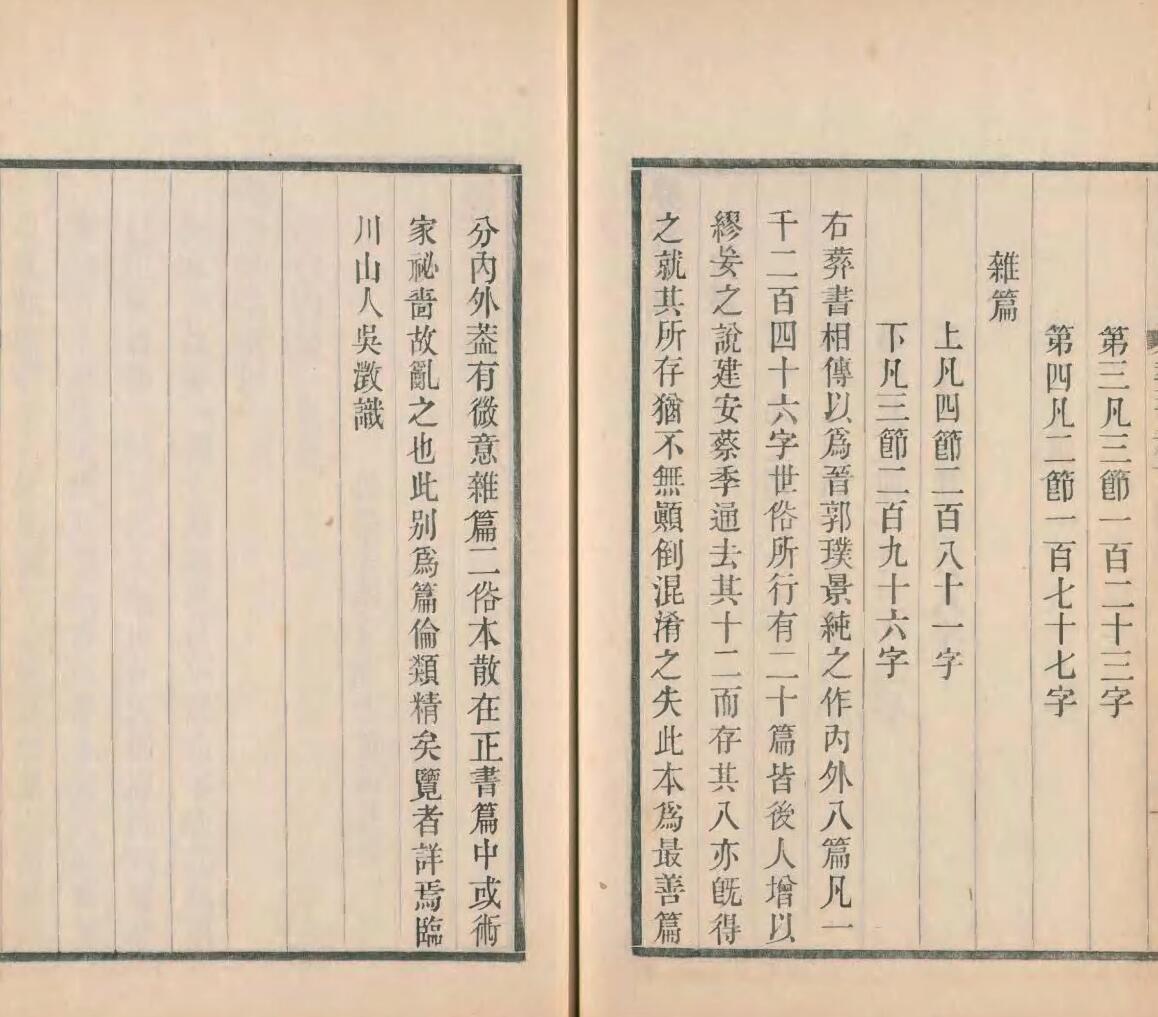 第三凡三節一百二十三字
第四凡二節一百七十七字
雜篇
上凡四節二百八十一字
下凡三節二百九十六字
右葬書相傳以爲晉郭璞景純之作内外八篇凡一
千二百四十六字世俗所行有二十篇皆後人增以
繆妄之說建安蔡季通去其十二而存其八亦旣得
之就其所存猶不無顚倒混淆之失此本爲最善篇
分内外葢有微意雜篇二俗本散在正書篇中或術
家祕嗇故亂之也此别爲篇倫類精矣覽者詳焉臨
川山人吳澂識